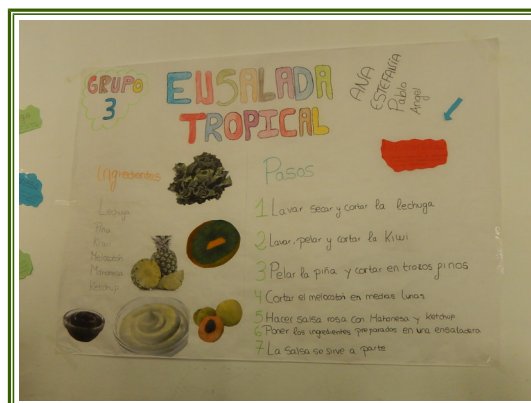 GRUPO
3
ENSALADA
TROPICAL
ANA
ESTEFANÍA
Pablo
Angel
Ingredientes
Lechuga
Piña
Kiwi
Melocotón
Mahonesa
Ketchup
Pasos
1 Lavar secar y cortar la lechuga
2 Lavar, pelar y cortar la Kiwi
3 Pelar la piña y cortar en trozos pinos
4 Cortar el melocotón en medias lunas
5 Hacer salsa rosa con Mahonesa y ketchup
6 Poner los ingredientes preparados en una ensaladera
7 La salsa se sirve a parte